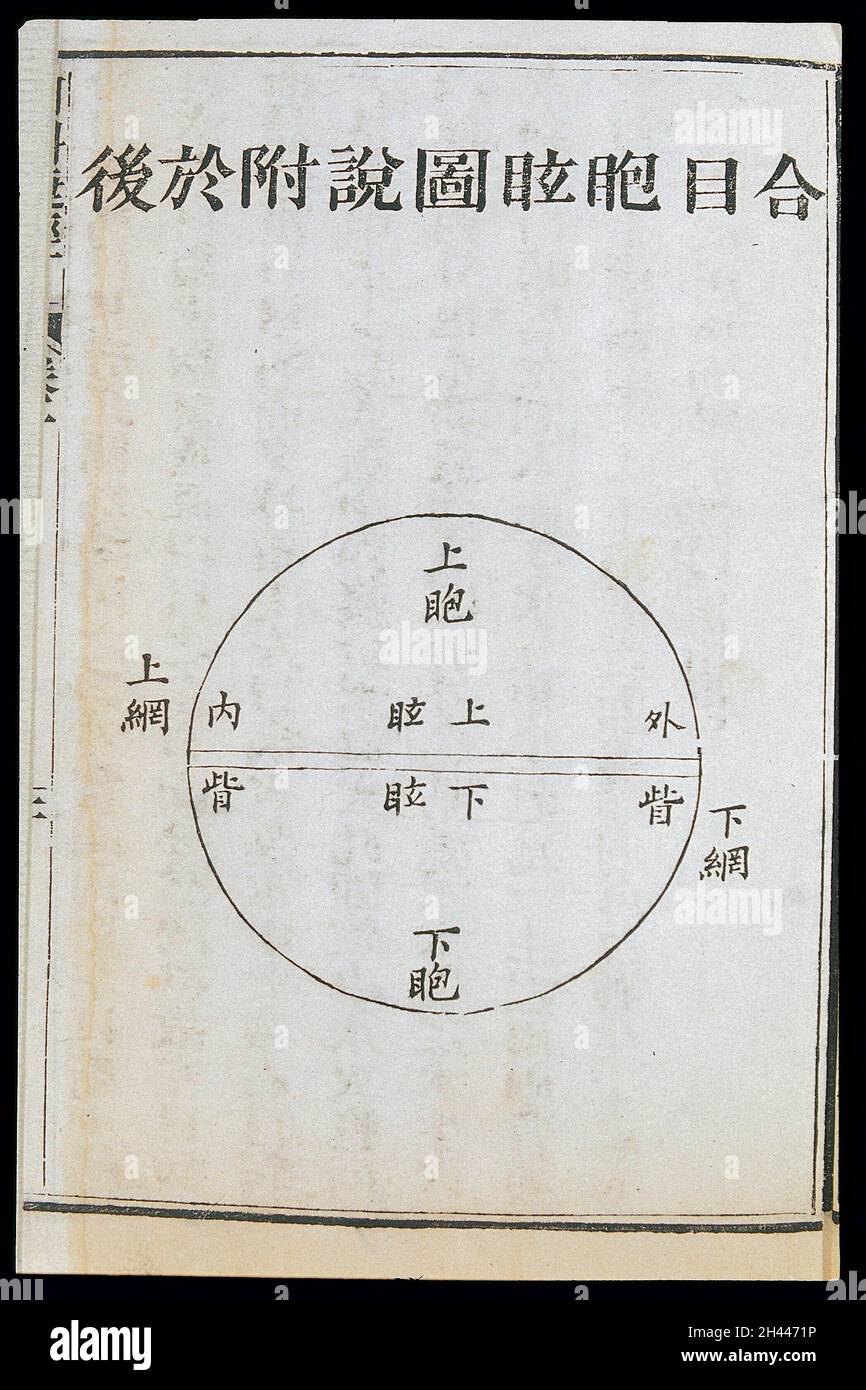 合目胞眩圖說附於後
上
胞
上網
內眥
上眩
外眥
下眩
下網
下
胞
alamy
Image ID: 2H4471P
www.alamy.com